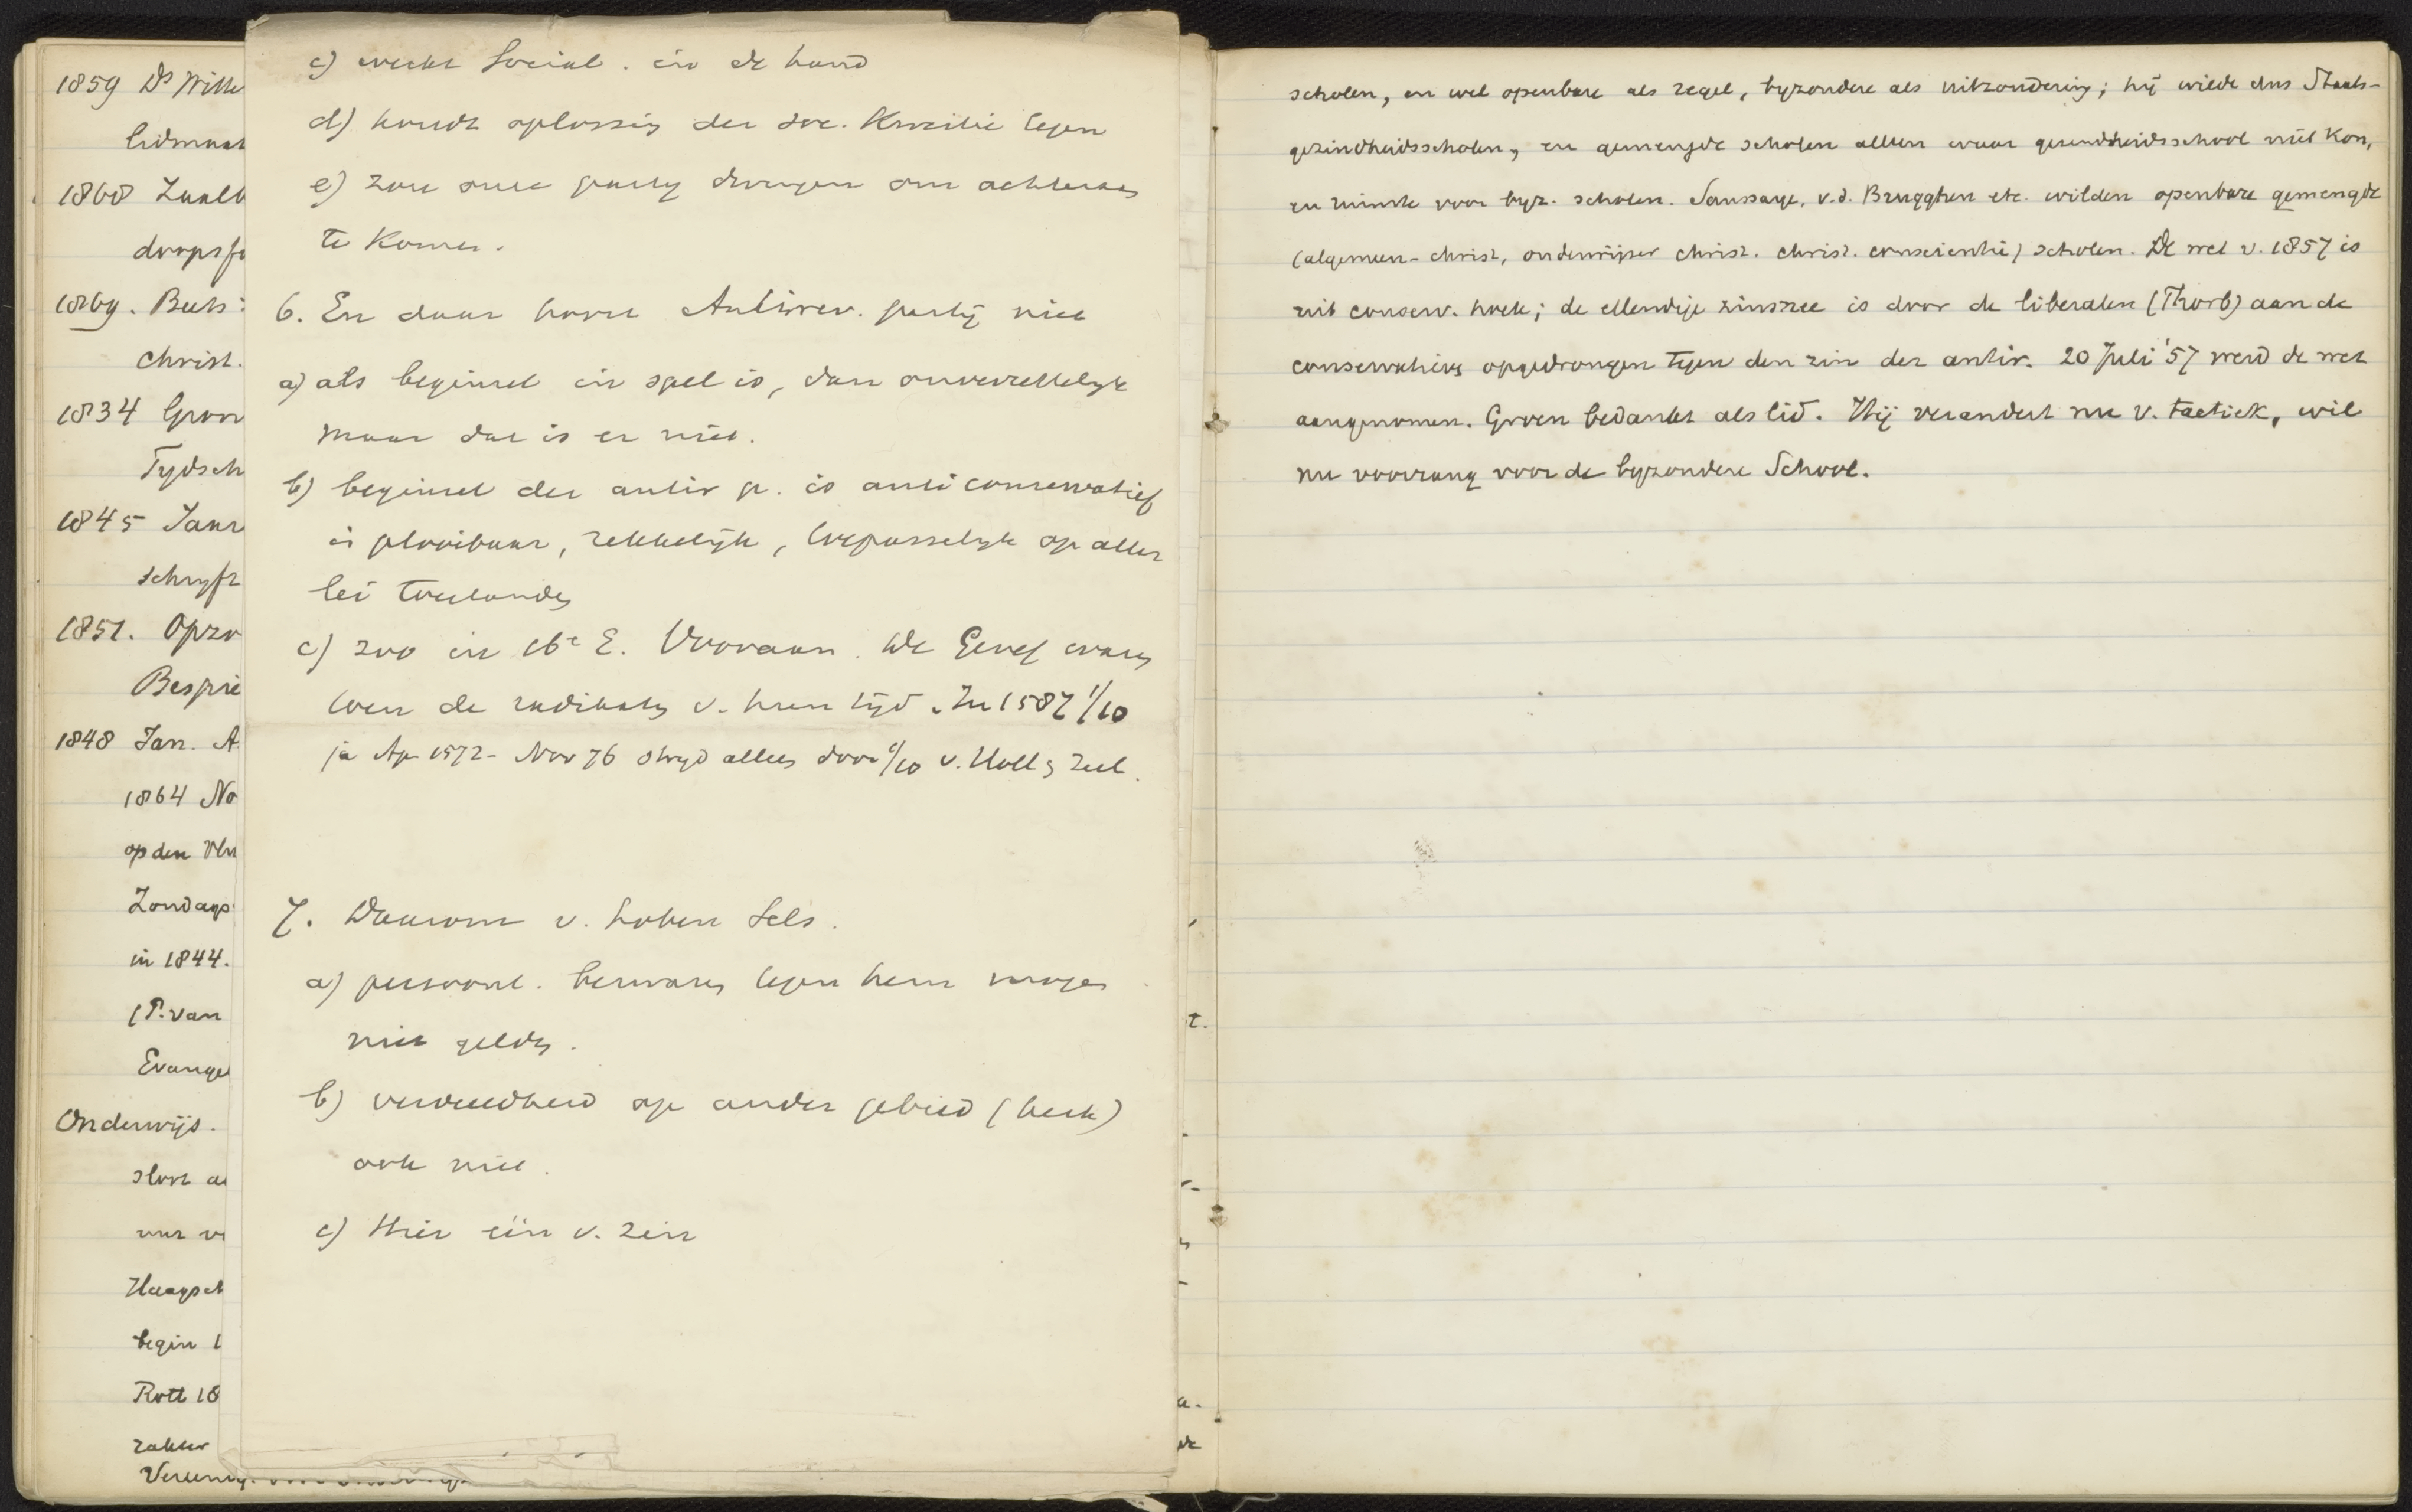 1859 Ds Wille
lidmaat
1860 Zaalb
doopsfo
1869. Beets:
christ.
1834 Gron
Tydsch
1845 Jaar
schryft
1851. Opzo
Bespie
1848 Jan. A
1864 No
op den
Zondags
in 1844.
(P. van
Evangel
Onderwijs.
stort a
uur v
Haagsch
begin 1
Rott 18
zakler
Vereenig.
c) werkt Social. in de hand
d) houdt oplossing der soc. Kwestie tegen
e) zou onze party dwingen om achteraan
te komen.
6. En daar hoort Antirev. partij niet
a) als beginsel in spel is, dan onverzettelyk
maar dat is er niet.
b) beginsel der antir p. is anti conservatief
is plooibaar, rekkelijk, toepasselyk op aller
lei toestanden
c) zoo in 16e E. Vooraan. de Geref waren
toen de radikalen v. hun tijd. In 1587 1/10
ja Ap 1572 - Nov 76 stryd alleen door 1/10 v. Holl en Zeel.
7. Waarom v. Lohen Sels.
a) persoonl. bezwaren tegen hem mogen
niet gelden.
b) verdeeldheid op ander gebied (kerk)
ook niet.
c) Hier één v. zin
t.
a.
de
scholen, en wel openbare als regel, byzondere als uitzondering; hij wilde dus Staats-
gezindheidsscholen, en gemengde scholen alleen waar gezindheidsschool niet kon,
en ruimte voor byz. scholen. Saussaye, v.d. Brugghen etc. wilden openbare gemengde
(algemeen-christ, onderwijzer christ. christ. conscientie) scholen. De wet v. 1857 is
uit conserv. hoek; de ellendige zinsnee is door de liberalen (Thorb) aan de
conservatieven opgedrongen tegen den zin der antir. 20 Juli '57 werd de wet
aangenomen. Groen bedankt als lid. Hij verandert nu v. tactiek, wil
nu voorrang voor de byzondere School.